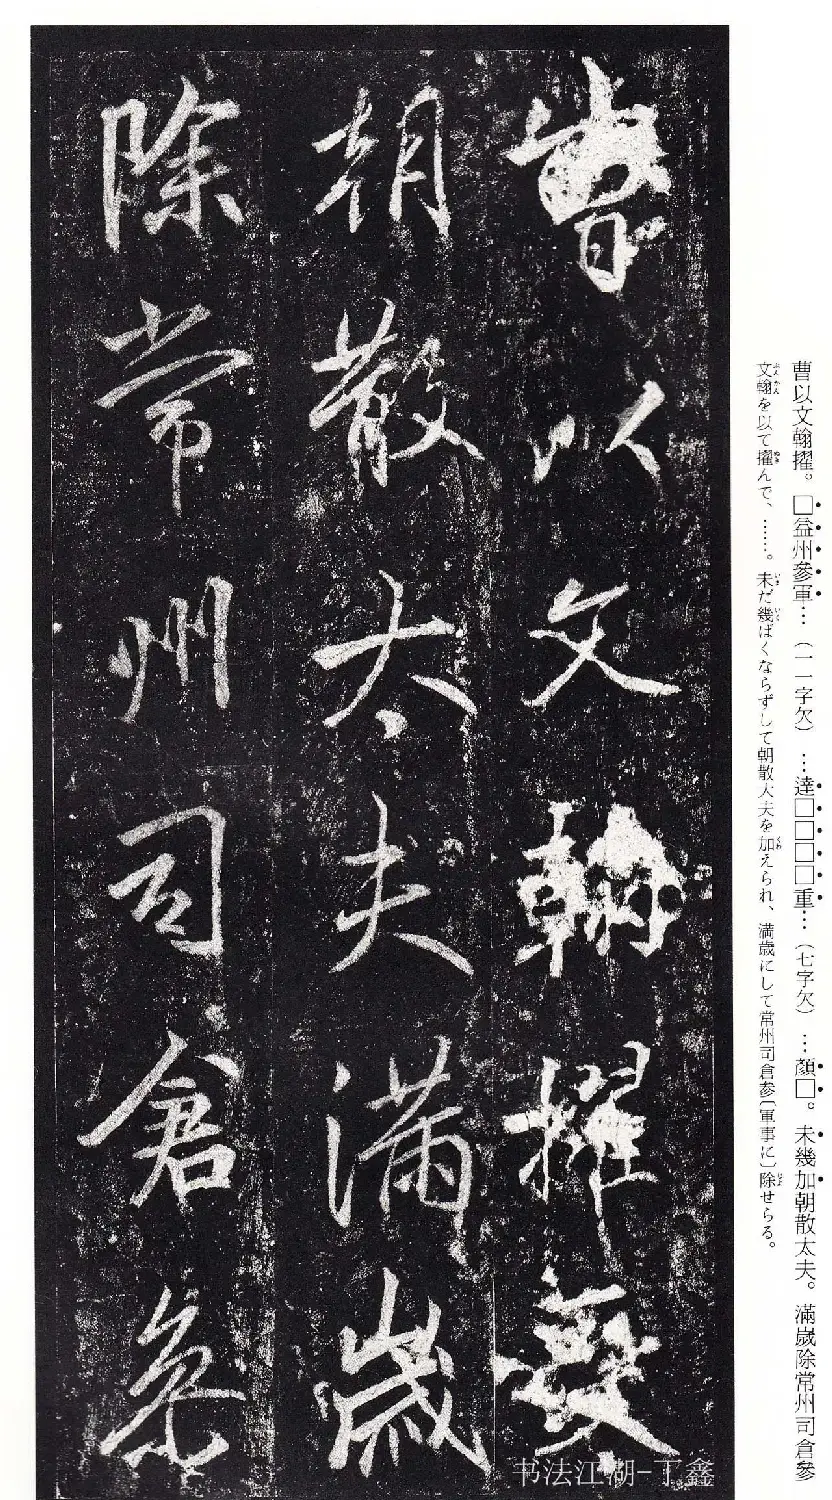 曹以文翰擢
朝散太夫滿歲
除常州司倉參
曹以文翰擢。□益州參軍…（一一字欠）…達□□□□重…（七字欠）…顏□。未幾加朝散太夫。滿歲除常州司倉參
文翰を以て擢んで、……。未だ幾ばくならずして朝散大夫を加えられ、満歳にして常州司倉参〔軍事に〕除せらる。
书法江湖-丁鑫